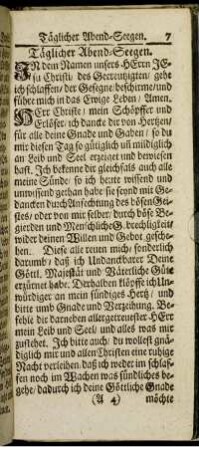 Täglicher Abend-Seegen. 7
Täglicher Abend-Seegen.
IN dem Namen unsers HErrn JE-
su Christi, des Gecreutzigten, gehe
ich schlaffen, der Gesegne, bescherme, und
führe mich in das Ewige Leben, Amen.
HErr Christe, mein Schöpffer und
Erlöser, ich dancke dir von Hertzen,
für alle deine Gnade und Gaben, so du
mir diesen Tag so gütiglich uñ mildiglich
an Leib und Seel erzeiget und bewiesen
hast. Ich bekenne dir gleichfals auch alle
meine Sünde, so ich heute wissend und
unwissend gethan habe, sie seynd mit Ge-
dancken durch Anfechtung des bösen Gei-
stes, oder von mir selber, durch böse Be-
gierden und Menschliche Gebrechligkeit
wider deinen Willen und Gebot gesche-
hen. Diese alle reuen mich, sonderlich
darumb, daß ich Undanckbarer Deine
Göttl. Majestät und Väterliche Güte
erzürnet habe. Derhalben klopffe ich Un-
würdiger an mein sündiges Hertz, und
bitte umb Gnade und Verzeihung. Be-
fehle dir darneben allergetreuester HErr
mein Leib und Seel, und alles was mir
zustehet. Ich bitte auch, du wollest gnä-
diglich mir und allen Christen eine ruhige
Nacht verleihen, daß ich weder im schlaf-
fen noch im Wachen was sündliches be-
gehe, dadurch ich deine Göttliche Gnade
(A 4) möchte